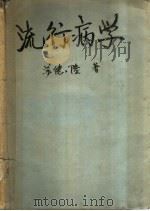 流行病学
苏德·隆 著